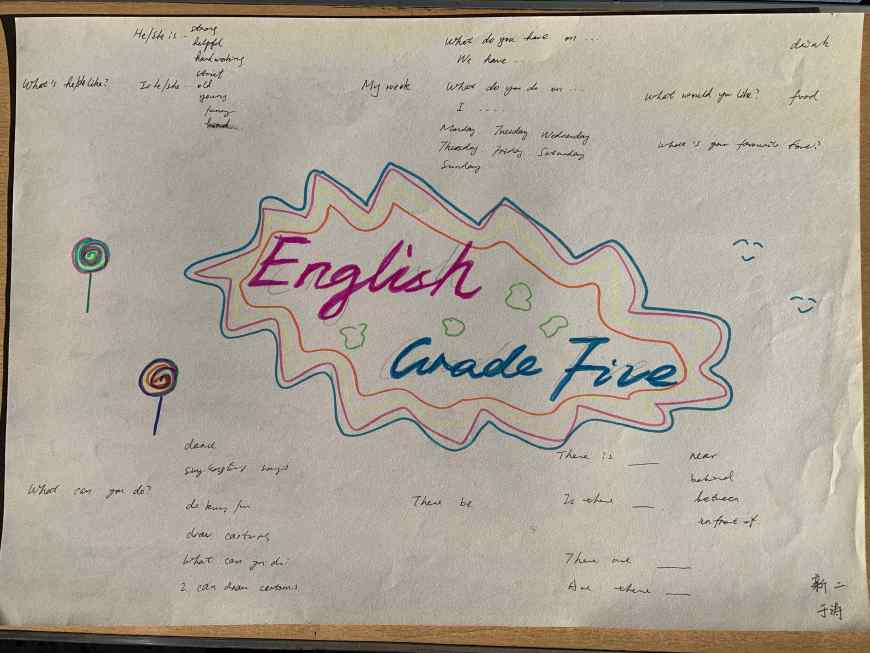 He/She is
strong
helpful
hardworking
What's he/she like?
Is he/she
strict
old
young
funny
My week
What do you have on ...
We have ...
What do you do on ...
I ....
Monday Tuesday Wednesday
Thursday Friday Saturday
Sunday
drink
What would you like?
food
What's your favourite food?
English
Grade Five
What can you do?
dance
sing English songs
do kung fu
draw cartoons
What can you do?
I can draw cartoons
There be
There is
Is there
There are
Are there
near
behind
between
in front of
新二
于涛